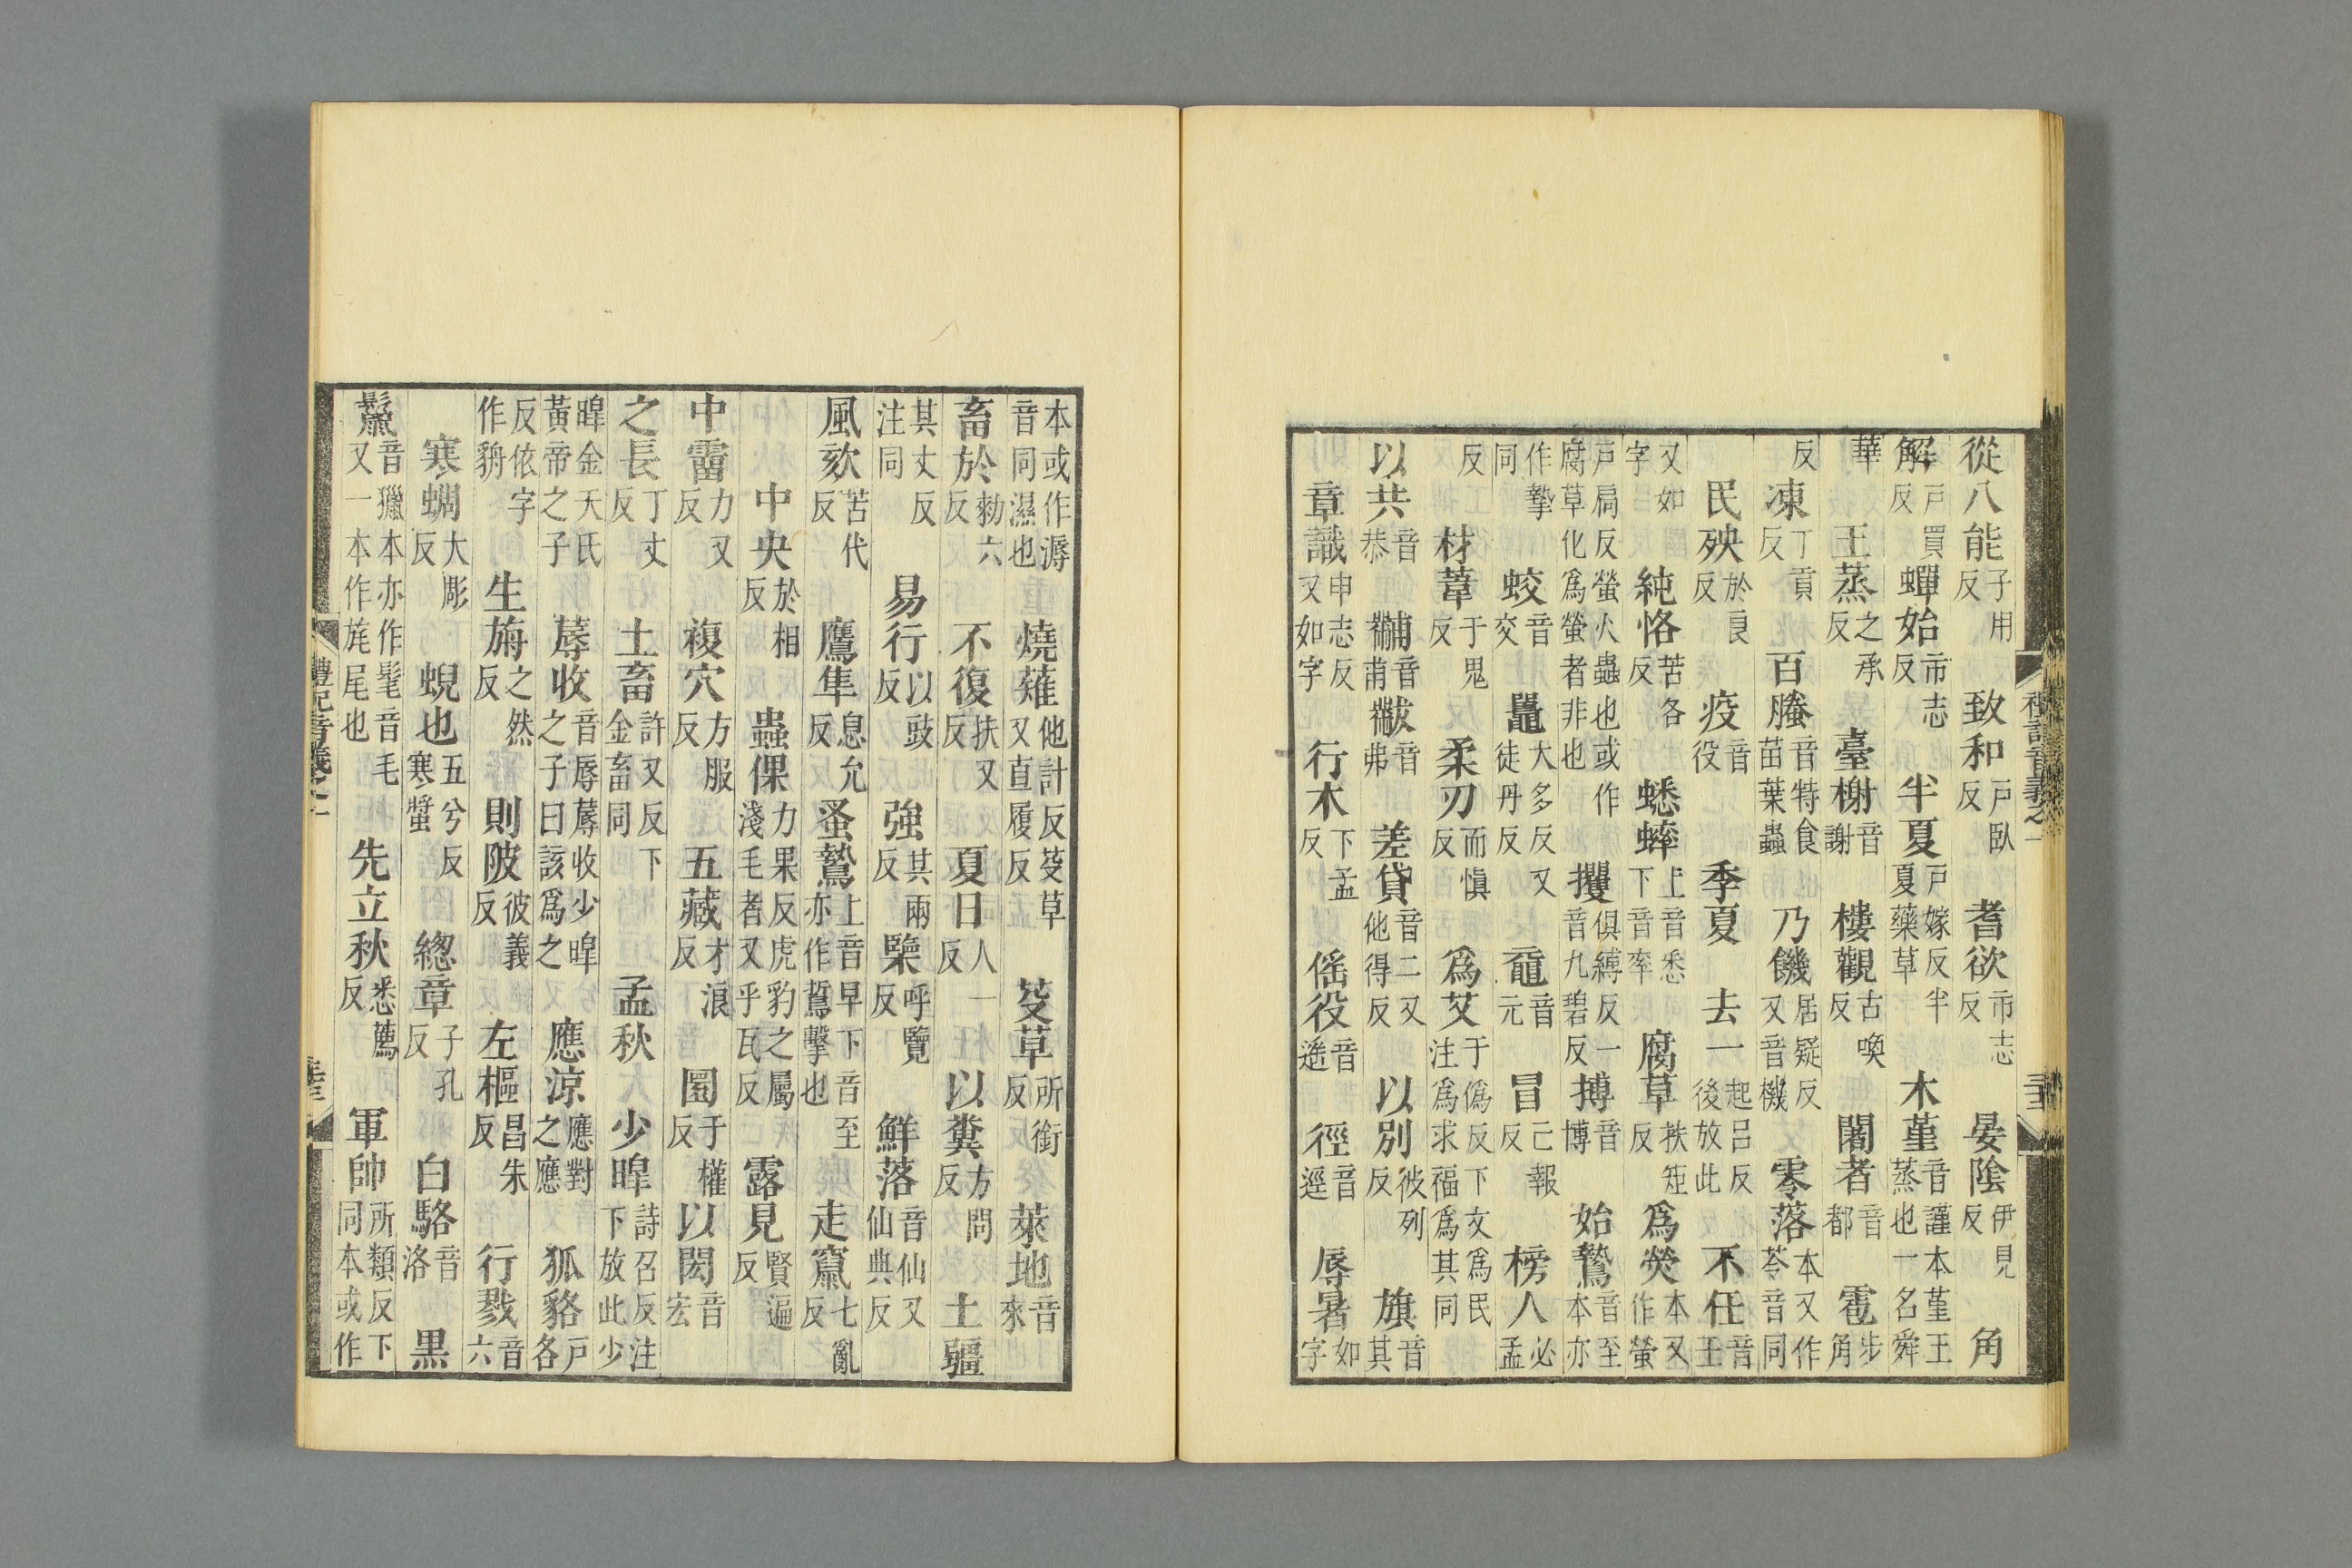 從八能子用反 致和戸臥反 耆欲市志反 晏陰伊見反 角
解戸買反 蟬始市志反 半夏戸嫁反半夏藥草 木菫音謹本菫王蒸也一名舜
華 王蒸之承反 臺榭音謝 樓觀古喚反 闍者音都 雹步角
反 凍丁貢反 百螣音特食苗葉蟲 乃饑居疑反又音機 零落本又作苓音同
民殃於良反 疫音役 季夏 去一起呂反後放此 不任音壬
又如字 純恪苦各反 蟋蟀上音悉下音率 腐草扶矩反 爲熒本又作螢
戸扃反螢火蟲也或作腐草化爲螢者非也 攫俱縛反一音九碧反 搏音博 始鷙音至本亦
作摯同 蛟音交 鼉大多反又徒丹反 黿音元 冒亡報反 榜人必孟
反 材葦于鬼反 柔刃而愼反 爲艾于僞反下文爲民注爲求福爲其同
以共音恭 黼音甫 黻音弗 差貸音二又他得反 以別彼列反 旗音其
章識申志反又如字 行木下孟反 傜役音遙 徑音逕 辱暑如字
禮記音義之一 三十一
本或作溽音同濕也 燒薙他計反芟草又直履反 芟草所銜反 萊地音來
畜於勑六反 不復扶又反 夏日人一反 以糞方問反 土疆
其丈反注同 易行以豉反 強其兩反 㯺呼覽反 鮮落音仙又仙典反
風欬苦代反 鷹隼息允反 蚤鷙上音早下音至亦作鷙擊也 走竄七亂反
中央於相反 蟲倮力果反虎豹之屬淺毛者又乎瓦反 露見賢遍反
中霤力又反 複穴方服反 五藏才浪反 圜于權反 以閎音宏
之長丁丈反 土畜許又反下金畜同 孟秋 少皡詩召反注下放此少
皡金天氏黃帝之子 蓐收音辱蓐收少皡之子曰該爲之 應涼應對之應 狐貉戸各
反依字作貈 生旃之然反 則陂彼義反 左樞昌朱反 行戮音六
寒蜩大彫反 蜺也五兮反寒螿 總章子孔反 白駱音洛 黑
鬣音獵本亦作髦音毛又一本作旄尾也 先立秋悉薦反 軍帥所類反下同本或作